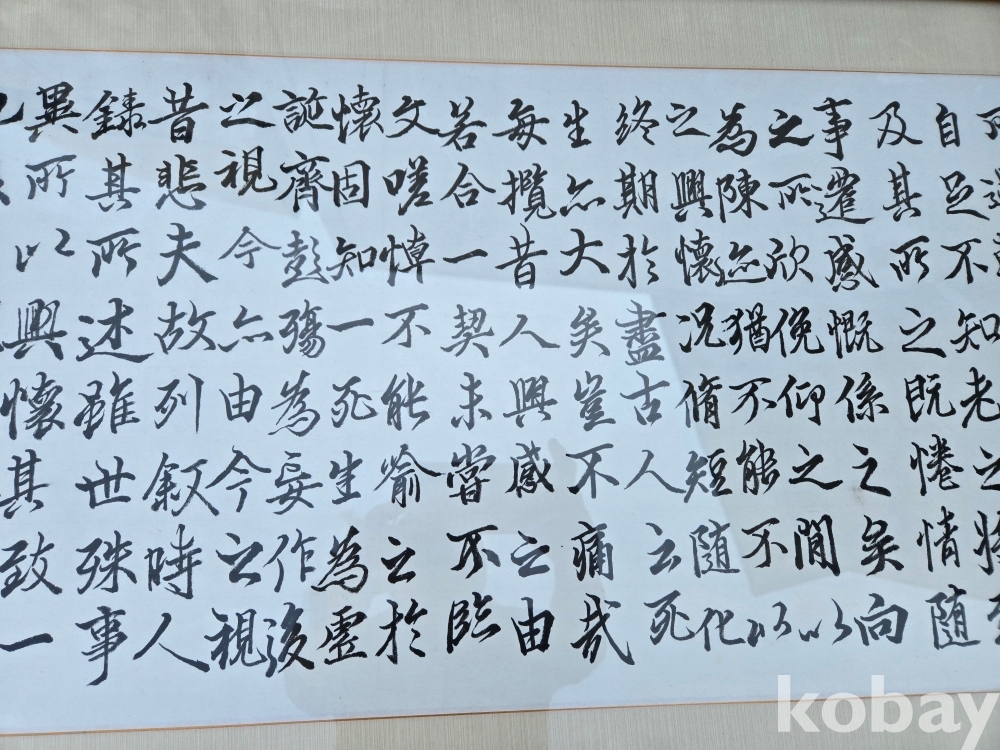 自足不知老之將
及其所之既惓情隨
事遷感慨係之矣向
之所欣俛仰之間以
為陳迹猶不能不以
之興懷況脩短隨化
終期於盡古人云死
生亦大矣豈不痛哉
每攬昔人興感之由
若合一契未嘗不臨
文嗟悼不能喻之於
懷固知一死生為虛
誕齊彭殤為妄作後
之視今亦由今之視
昔悲夫故列敘時人
錄其所述雖世殊事
異所以興懷其致一
kobay